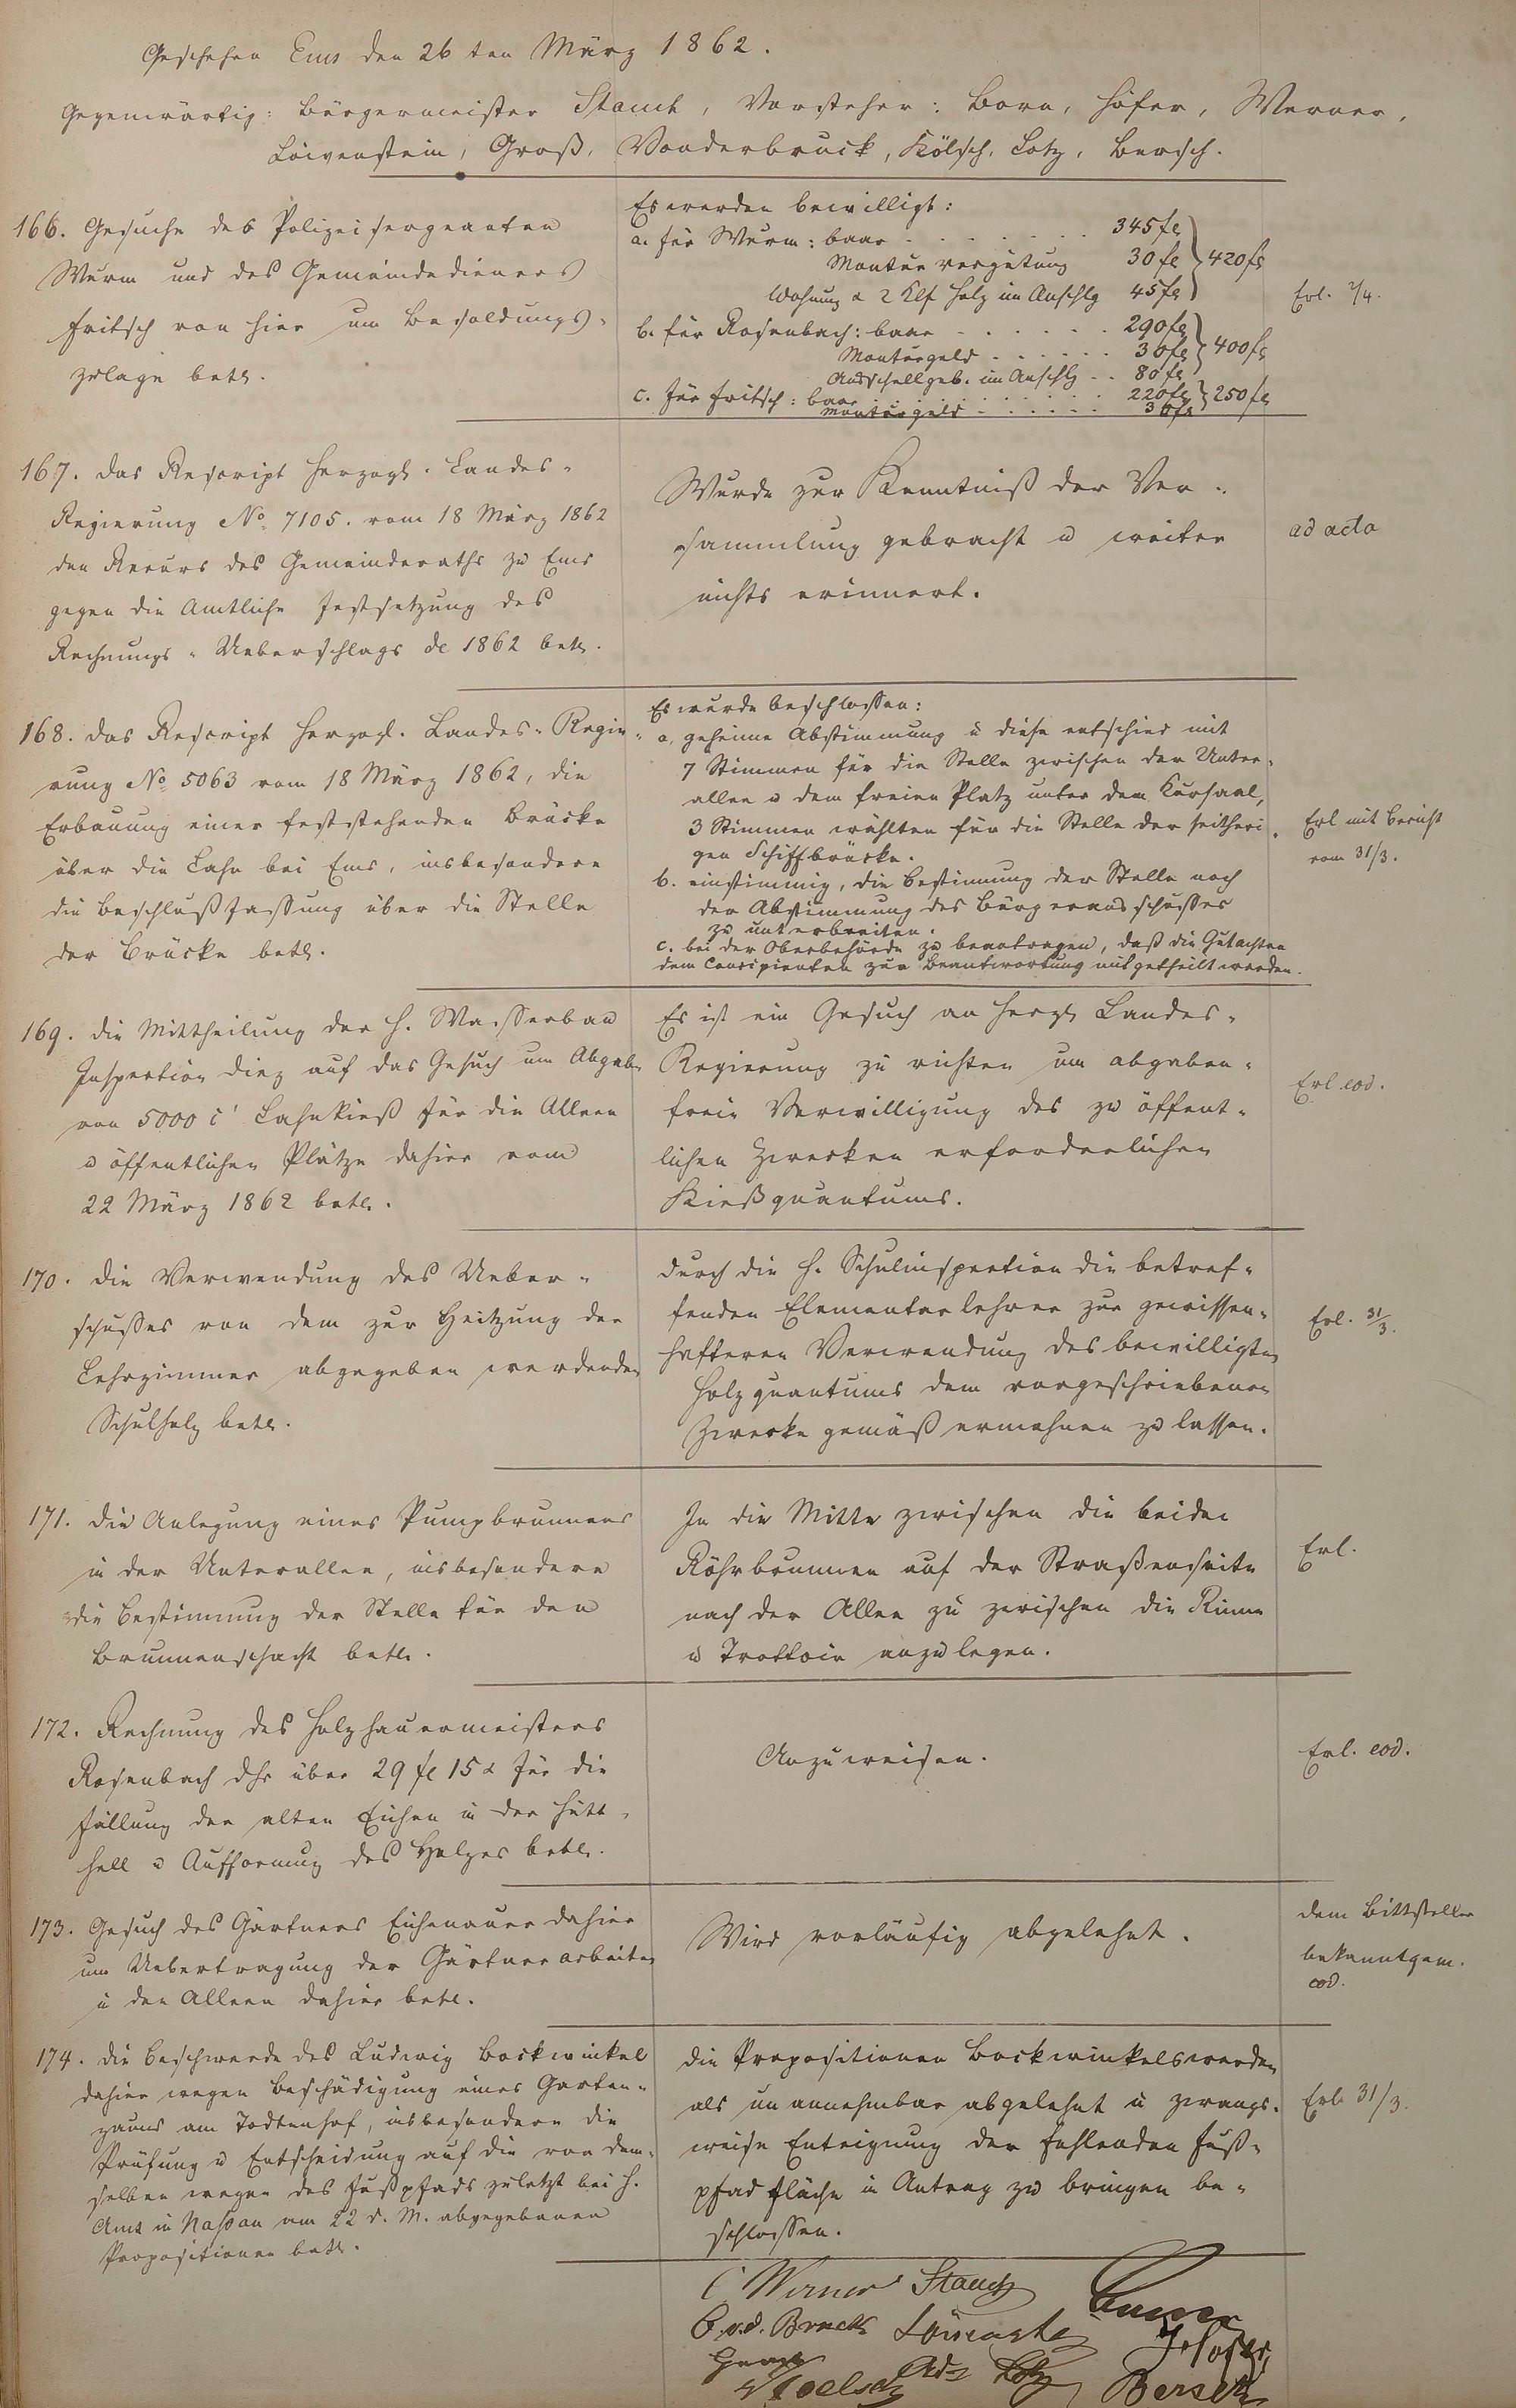 Geschehen Ems den 26ten März 1862.
Gegenwärtig: Bürgermeister Stauch, Vorsteher: Born, Höfer, Werner,
Löwenstein, Groß, Vonderbruck, Kölsch, Lotz, Bersch.
166. Gesuche des Polizeisergeanten
Wurm und des Gemeindedieners
Fritsch von hier um Besoldungs-
zulage betr.
Es werden bewilligt:
a. für Wurm: baar . . . . . . 345 fl
Monturvergütung 30 fl } 420 fl
Wohnung & 2 Klf Holz im Anschlg 45 fl
b. für Rosenbach: baar . . . . . . 290 fl
Monturgeld . . . . . . 30 fl } 400 fl
Ausschellgeb. im Anschlg . . 80 fl
c. für Fritsch: baar . . . . . . 220 fl } 250 fl
Monturgeld . . . . . . 30 fl
Erl. 2/4.
167. Das Rescript Herzogl. Landes-
Regierung No 7105. vom 18 März 1862
den Recurs des Gemeinderaths zu Ems
gegen die Amtliche Festsetzung des
Rechnungs-Ueberschlags de 1862 betr.
Wurde zur Kenntniß der Ver-
sammlung gebracht u weiter
nichts erinnert.
ad acta
168. Das Rescript Herzogl. Landes-Regie-
rung No 5063 vom 18 März 1862, die
Erbauung einer feststehenden Brücke
über die Lahn bei Ems, insbesondere
die Beschlußfassung über die Stelle
der Brücke betr.
Es wurde beschlossen:
a. geheime Abstimmung u diese entschied mit
7 Stimmen für die Stelle zwischen der Unter-
allee u dem freien Platz unter dem Kursaal,
3 Stimmen wählten für die Stelle der seitheri-
gen Schiffbrücke.
b. einstimmig, die Bestimmung der Stelle noch
der Abstimmung des Bürgerausschusses
zu unterbreiten.
c. bei der Oberbehörde zu beantragen, daß die Gutachten
dem Concipienten zur Beantwortung mitgetheilt werden.
Erl mit Bericht
vom 31/3.
169. Die Mittheilung der H. Wasserbau
Inspection Diez auf das Gesuch um Abgabe
von 5000 c' Lahnkieß für die Alleen
u öffentlichen Plätze dahier vom
22 März 1862 betr.
Es ist ein Gesuch an Herzgl Landes-
Regierung zu richten um abgaben-
freie Verwilligung des zu öffent-
lichen Zwecken erforderlichen
Kießquantums.
Erl eod.
170. Die Verwendung des Ueber-
schusses von dem zur Heitzung der
Lehrzimmer abgegeben werdenden
Schulholz betr.
Durch die H. Schulinspection die betref-
fenden Elementarlehrer zur gewissen-
hafteren Verwendung des bewilligten
Holzquantums dem vorgeschriebenen
Zwecke gemäß ermahnen zu lassen.
Erl. 31/3.
171. Die Anlegung eines Pumpbrunnens
in der Unterallee, insbesondere
die Bestimmung der Stelle für den
Brunnenschacht betr.
In die Mitte zwischen die beiden
Röhrbrunnen auf der Straßenseite
nach der Allee zu zwischen die Rinne
u Trottoir anzulegen.
Erl.
172. Rechnung des Holzhauermeisters
Rosenbach dhr über 29 fl 15 x für die
Fällung der alten Eichen in der Hütt-
hell u Aufformung des Holzes betr.
Anzuweisen.
Erl. eod.
173. Gesuch des Gärtners Eichenauer dahier
um Uebertragung der Gärtnerarbeiten
in den Alleen dahier betr.
Wird vorläufig abgelehnt.
dem Bittsteller
bekanntgem.
eod.
174. Die Beschwerde des Ludwig Bockwinkel
dahier wegen Beschädigung eines Garten-
zauns am Todtenhof, insbesondere die
Prüfung u Entscheidung auf die von dem-
selben wegen des Fußpfads zuletzt bei H.
Amt in Nassau am 22 d. M. abgegebenen
Propositionen betr.
Die Propositionen Bockwinkels werden
als unannehmbar abgelehnt u zwangs-
weise Enteignung der fehlenden Fuß-
pfadfläche in Antrag zu bringen be-
schlossen.
Erl. 31/3.
C Werner Stauch
C. v. d. Bruck Löwenstein J Höfer
Groß
Koelsch Ad Lotz Bersch